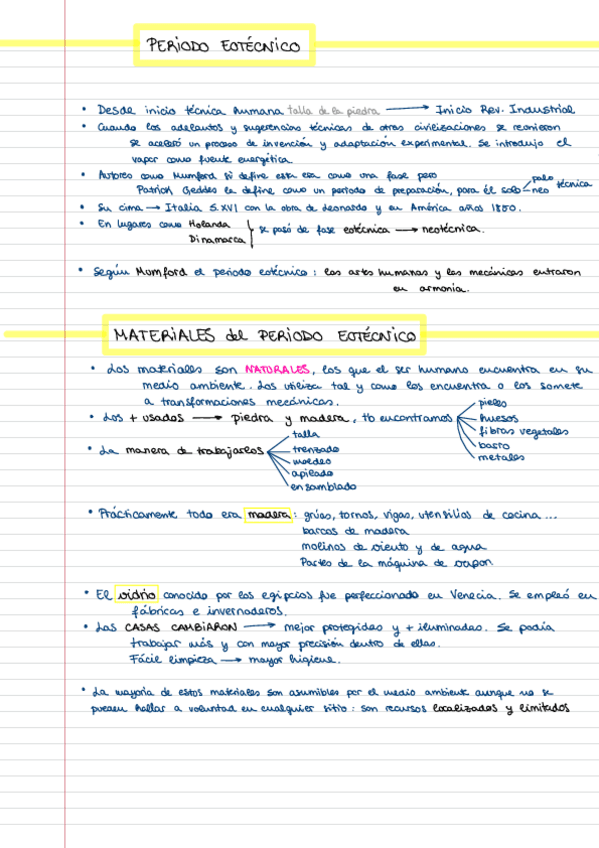 PERIODO EOTÉCNICO
• Desde inicio técnica humana talla de la piedra → Inicio Rev. Industrial
• Cuando los adelantos y sugerencias técnicas de otras civilizaciones se reunieron
se aceleró un proceso de invención y adaptación experimental. Se introdujo el
vapor como fuente energética
• Autores como Mumford si define esta era como una fase pero
Patrick Geddes la define como un periodo de preparación, para él solo paleo neo técnica
• Su cima → Italia S.XVI con la obra de Leonardo y en América años 1850.
• En lugares como Holanda
Dinamarca se pasó de fase eotécnica → neotécnica.
• Según Mumford el periodo eotécnico: las artes humanas y las mecánicas entraron
en armonía.
MATERIALES del PERIODO EOTÉCNICO
• Los materiales son NATURALES, los que el ser humano encuentra en su
medio ambiente. Los utiliza tal y como los encuentra o los somete
a transformaciones mecánicas.
• Los + usados → piedra y madera, tb encontramos
pieles
huesos
fibras vegetales
barro
metales
• La manera de trabajarlos
talla
trenzado
moldeo
apilado
ensamblado
• Prácticamente todo era madera: grúas, tornos, vigas, utensilios de cocina ...
barcos de madera
molinos de viento y de agua
Partes de la máquina de vapor
• El vidrio conocido por los egipcios fue perfeccionado en Venecia. Se empleó en
fábricas e invernaderos.
• Las CASAS CAMBIARON → mejor protegidas y + iluminadas. Se podía
trabajar más y con mayor precisión dentro de ellas.
Fácil limpieza → mayor higiene.
• La mayoría de estos materiales son asumibles por el medio ambiente aunque no se
pueden hallar a voluntad en cualquier sitio: son recursos localizados y limitados